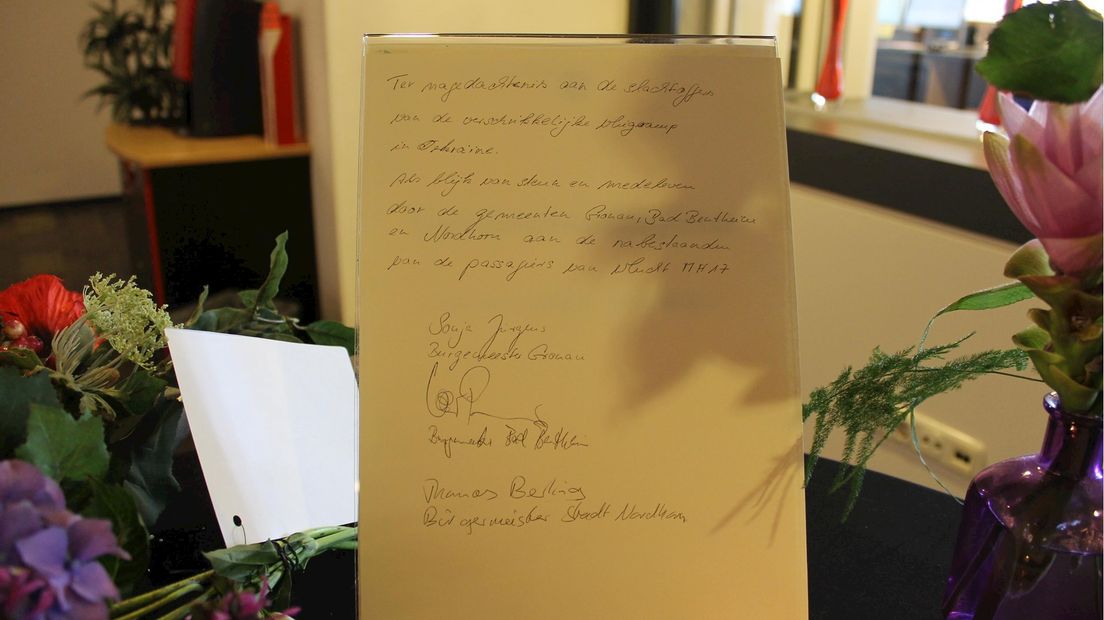 Ter nagedachtenis aan de slachtoffers
van de verschrikkelijke vliegramp
in Oekraïne.
Als blijk van steun en medeleven
door de gemeenten Gronau, Bad Bentheim
en Nordhorn aan de nabestaanden
van de passagiers van vlucht MH17
Sonja Jürgens
Burgemeester Gronau
Burgemeester Bad Bentheim
Thomas Berling
Bürgermeister Stadt Nordhorn